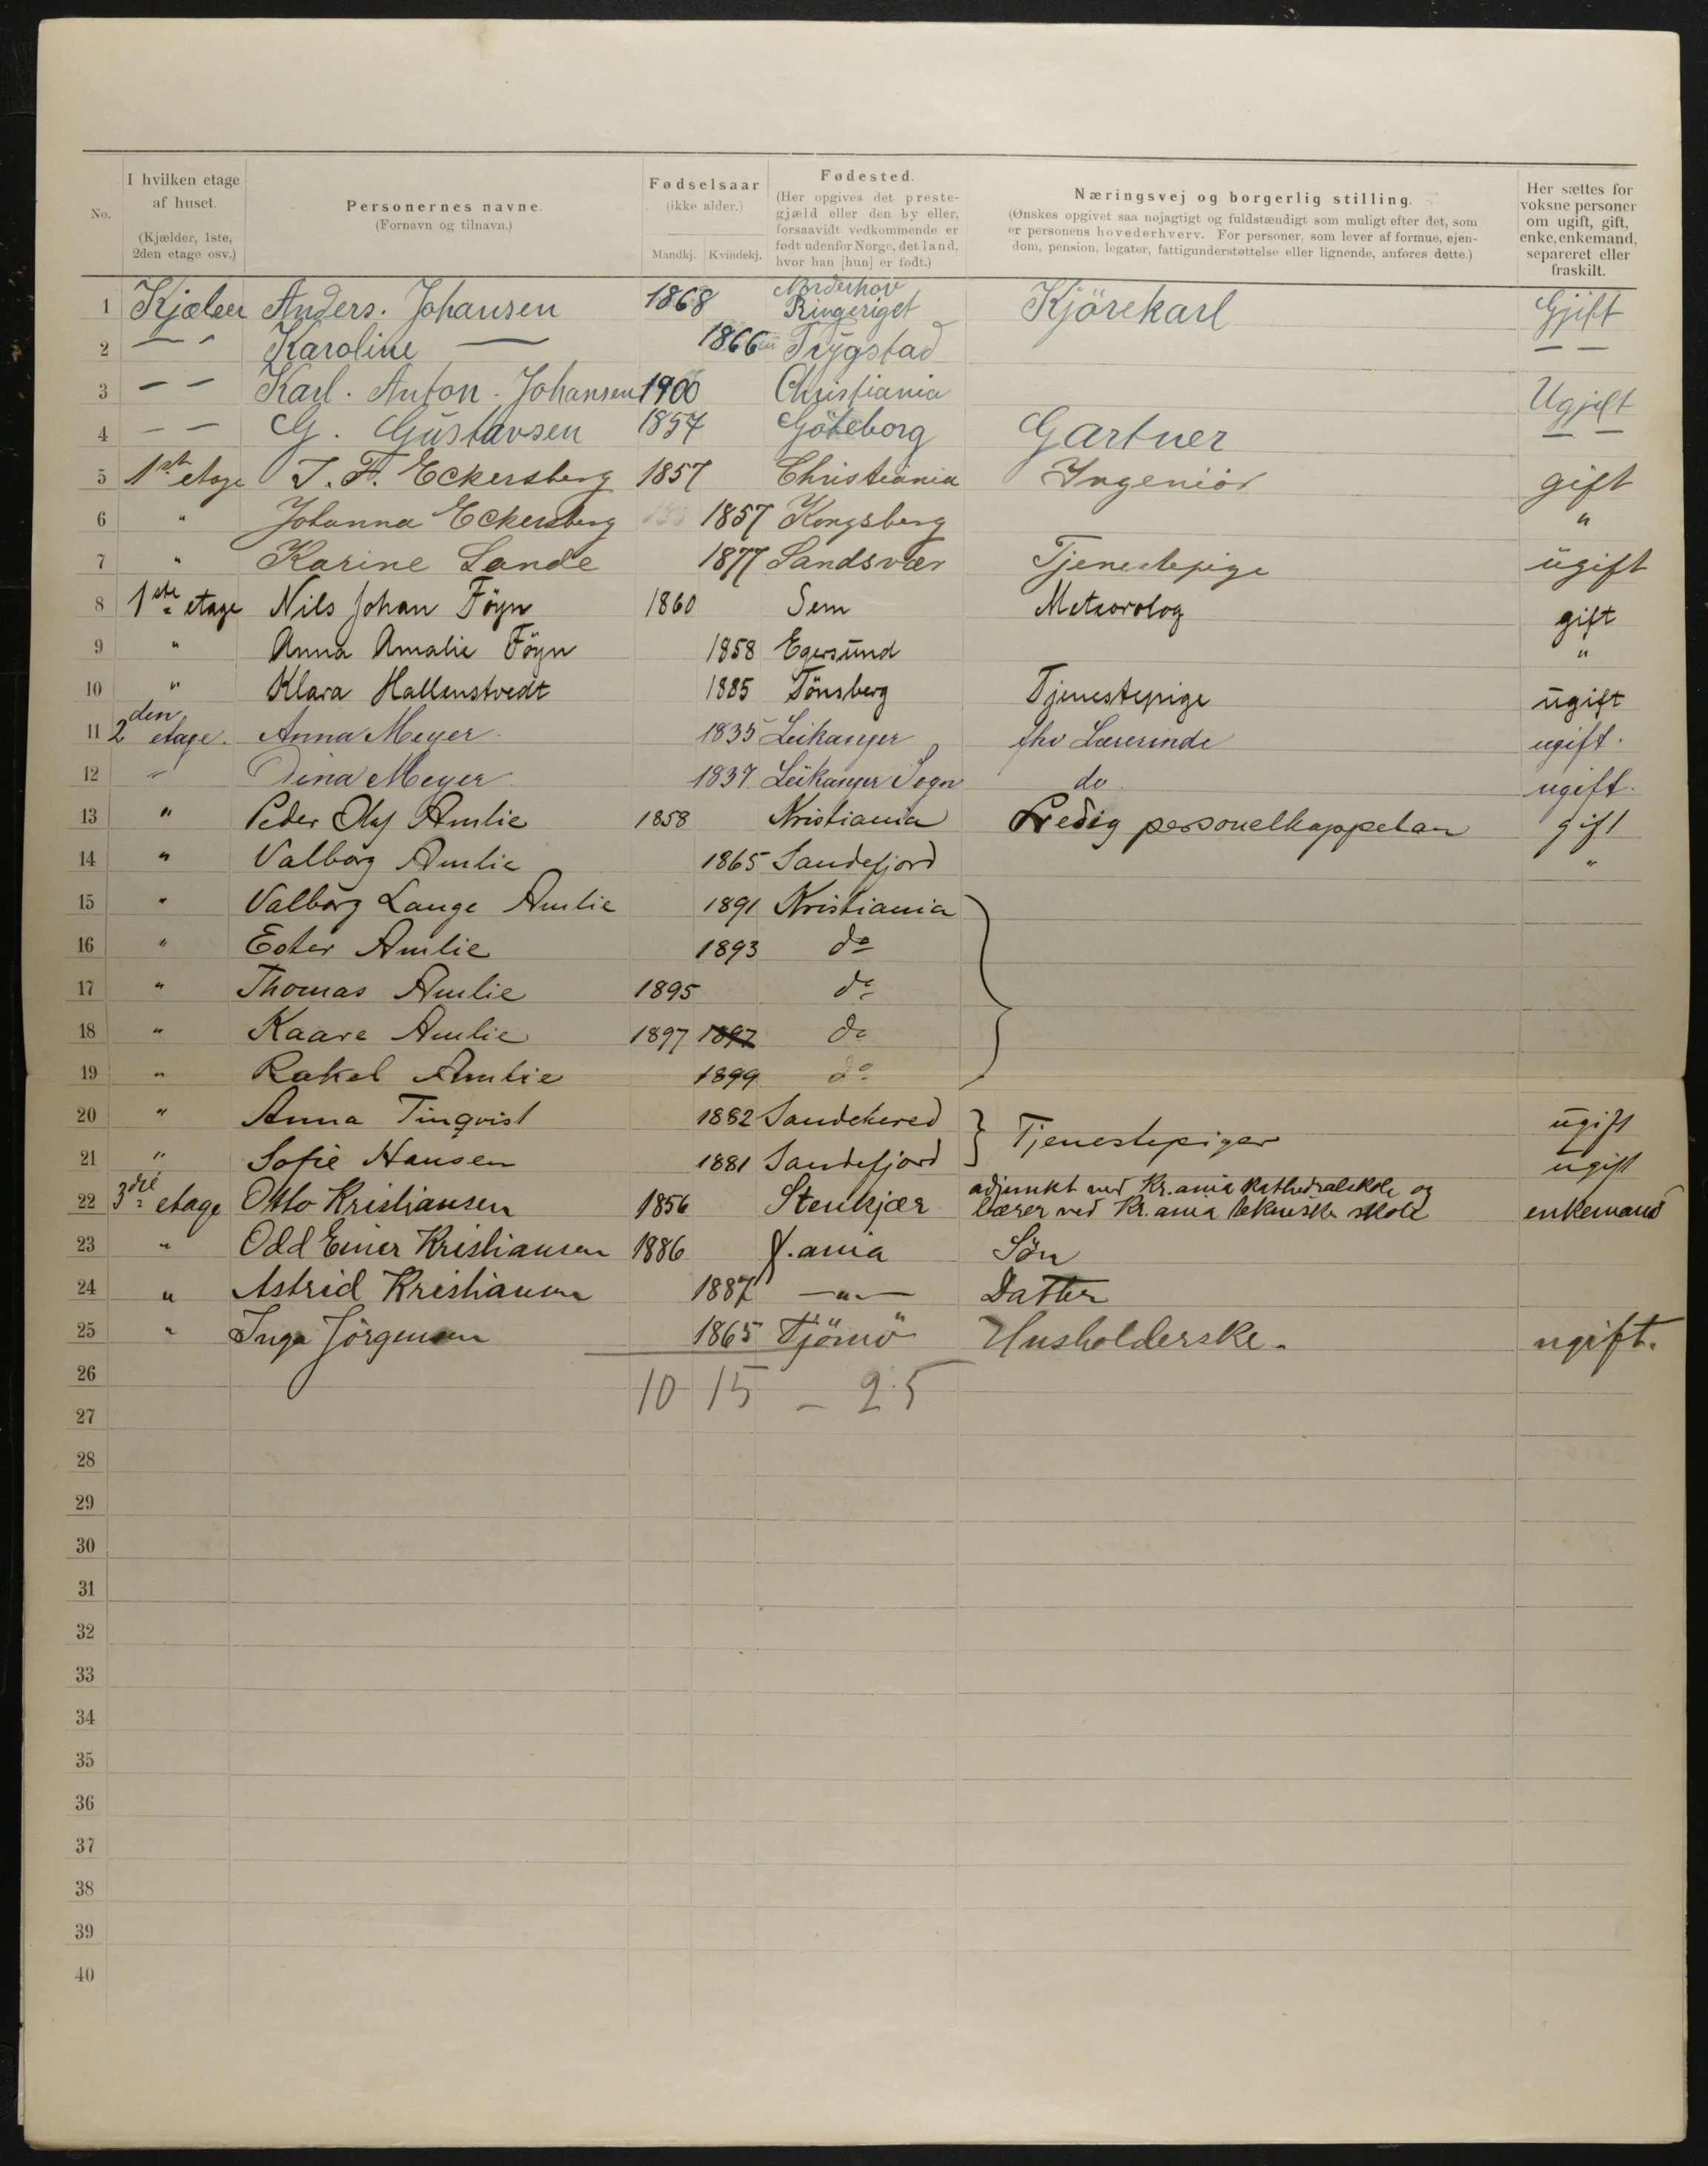 No.
I hvilken etage
af huset.
(Kjælder, 1ste,
2den etage osv.)
Personernes navne.
(Fornavn og tilnavn.)
Fødselsaar
(ikke alder.)
Mandkj. Kvindekj.
Fødested.
(Her opgives det preste-
gjæld eller den by eller,
forsaavidt vedkommende er
født udenfor Norge, det land,
hvor han [hun] er født.)
Næringsvej og borgerlig stilling.
(Ønskes opgivet saa nøjagtigt og fuldstændigt som muligt efter det, som
er personens hovederhverv. For personer, som lever af formue, ejen-
dom, pension, legater, fattigunderstøttelse eller lignende, anføres dette.)
Her sættes for
voksne personer
om ugift, gift,
enke, enkemand,
separeret eller
fraskilt.
1 Anders. Johansen 1868 Norderhov Ringeriget Kjörekarl Gjift
2 — " Karoline — 1866 Trygstad — —
3 — — Karl. Anton. Johansen 1900 Christiania Ugjift
4 — — G. Gustavsen 1857 Göteborg Gartner — —
5 1ste etage J. F. Eckersberg 1857 Christiania Ingeniör gift
6 " Johanna Eckersberg 1857 Kongsberg "
7 " Karine Lande 1877 Sandsvær Tjenestepige ugift
8 1ste etage Nils Johan Föyn 1860 Sem Meteorolog gift
9 " Anna Amalie Föyn 1858 Egersund "
10 " Klara Hallenstvedt 1885 Tönsberg Tjenestepige ugift
11 2den etage. Anna Meyer. 1835 Leikanger fhv Lærerinde ugift.
12 " Dina Meyer 1837 Leikanger Sogn do. ugift.
13 " Peder Olaf Amlie 1858 Kristiania personelkappelan gift
14 " Valborg Amlie 1865 Sandefjord "
15 " Valborg Lange Amlie 1891 Kristiania
16 " Ester Amlie 1893 do
17 " Thomas Amlie 1895 do
18 " Kaare Amlie 1897 1897 do
19 " Rakel Amlie 1899 do
20 " Anna Tinqvist 1882 Sandehered } Tjenestepiger ugift
21 " Sofie Hansen 1881 Sandefjord ugift
22 3die etage Otto Kristiansen 1856 Stenkjær adjunkt ved Kr.ania Kathedralskole og
lærer ved Kr.ania tekniske skole enkemand
23 " Odd Einer Kristiansen 1886 K.ania Sön
24 " Astrid Kristiansen 1887 —"— Datter
25 " Inga Jörgensen 1865 Tjömö Husholderske. ugift.
26
10 15 – 25
27
28
29
30
31
32
33
34
35
36
37
38
39
40